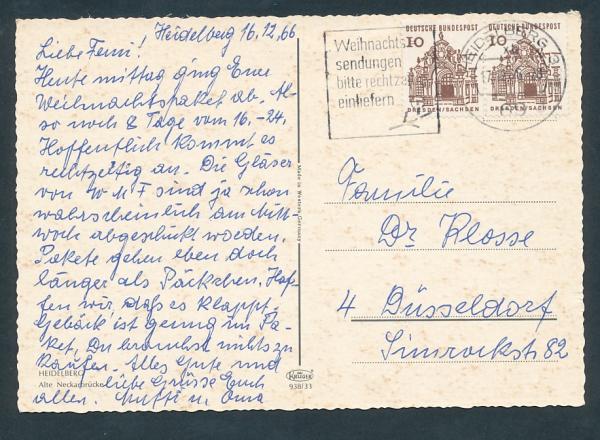 Heidelberg 16.12.66
Liebe Femi!
Heute mittag ging Eure
Weihnachtspaket ab. Al-
so noch 8 Tage vom 16.-24.
Hoffentlich kommt es
rechtzeitig an. Die Gläser
von WMF sind ja schon
wahrscheinlich am Mitt-
woch abgeschickt worden.
Pakete gehen eben doch
länger als Päckchen. Hof-
fen wir, daß es klappt.
Gebäck ist genug im Pa-
ket, Du brauchst nichts zu
kaufen. Alles Gute und
liebe Grüsse Euch
allen. Mutti u. Oma
HEIDELBERG
Alte Neckarbrücke
Made in Western Germany
KRÜGER
938/33
Weihnachts
sendungen
bitte rechtzei
einliefern
DEUTSCHE BUNDESPOST
10
DRESDEN/SACHSEN
DEUTSCHE BUNDESPOST
10
DRESDEN/SACHSEN
HEIDELBERG 2
Familie
Dr. Klosse
4 Düsseldorf
Simrockstr. 82